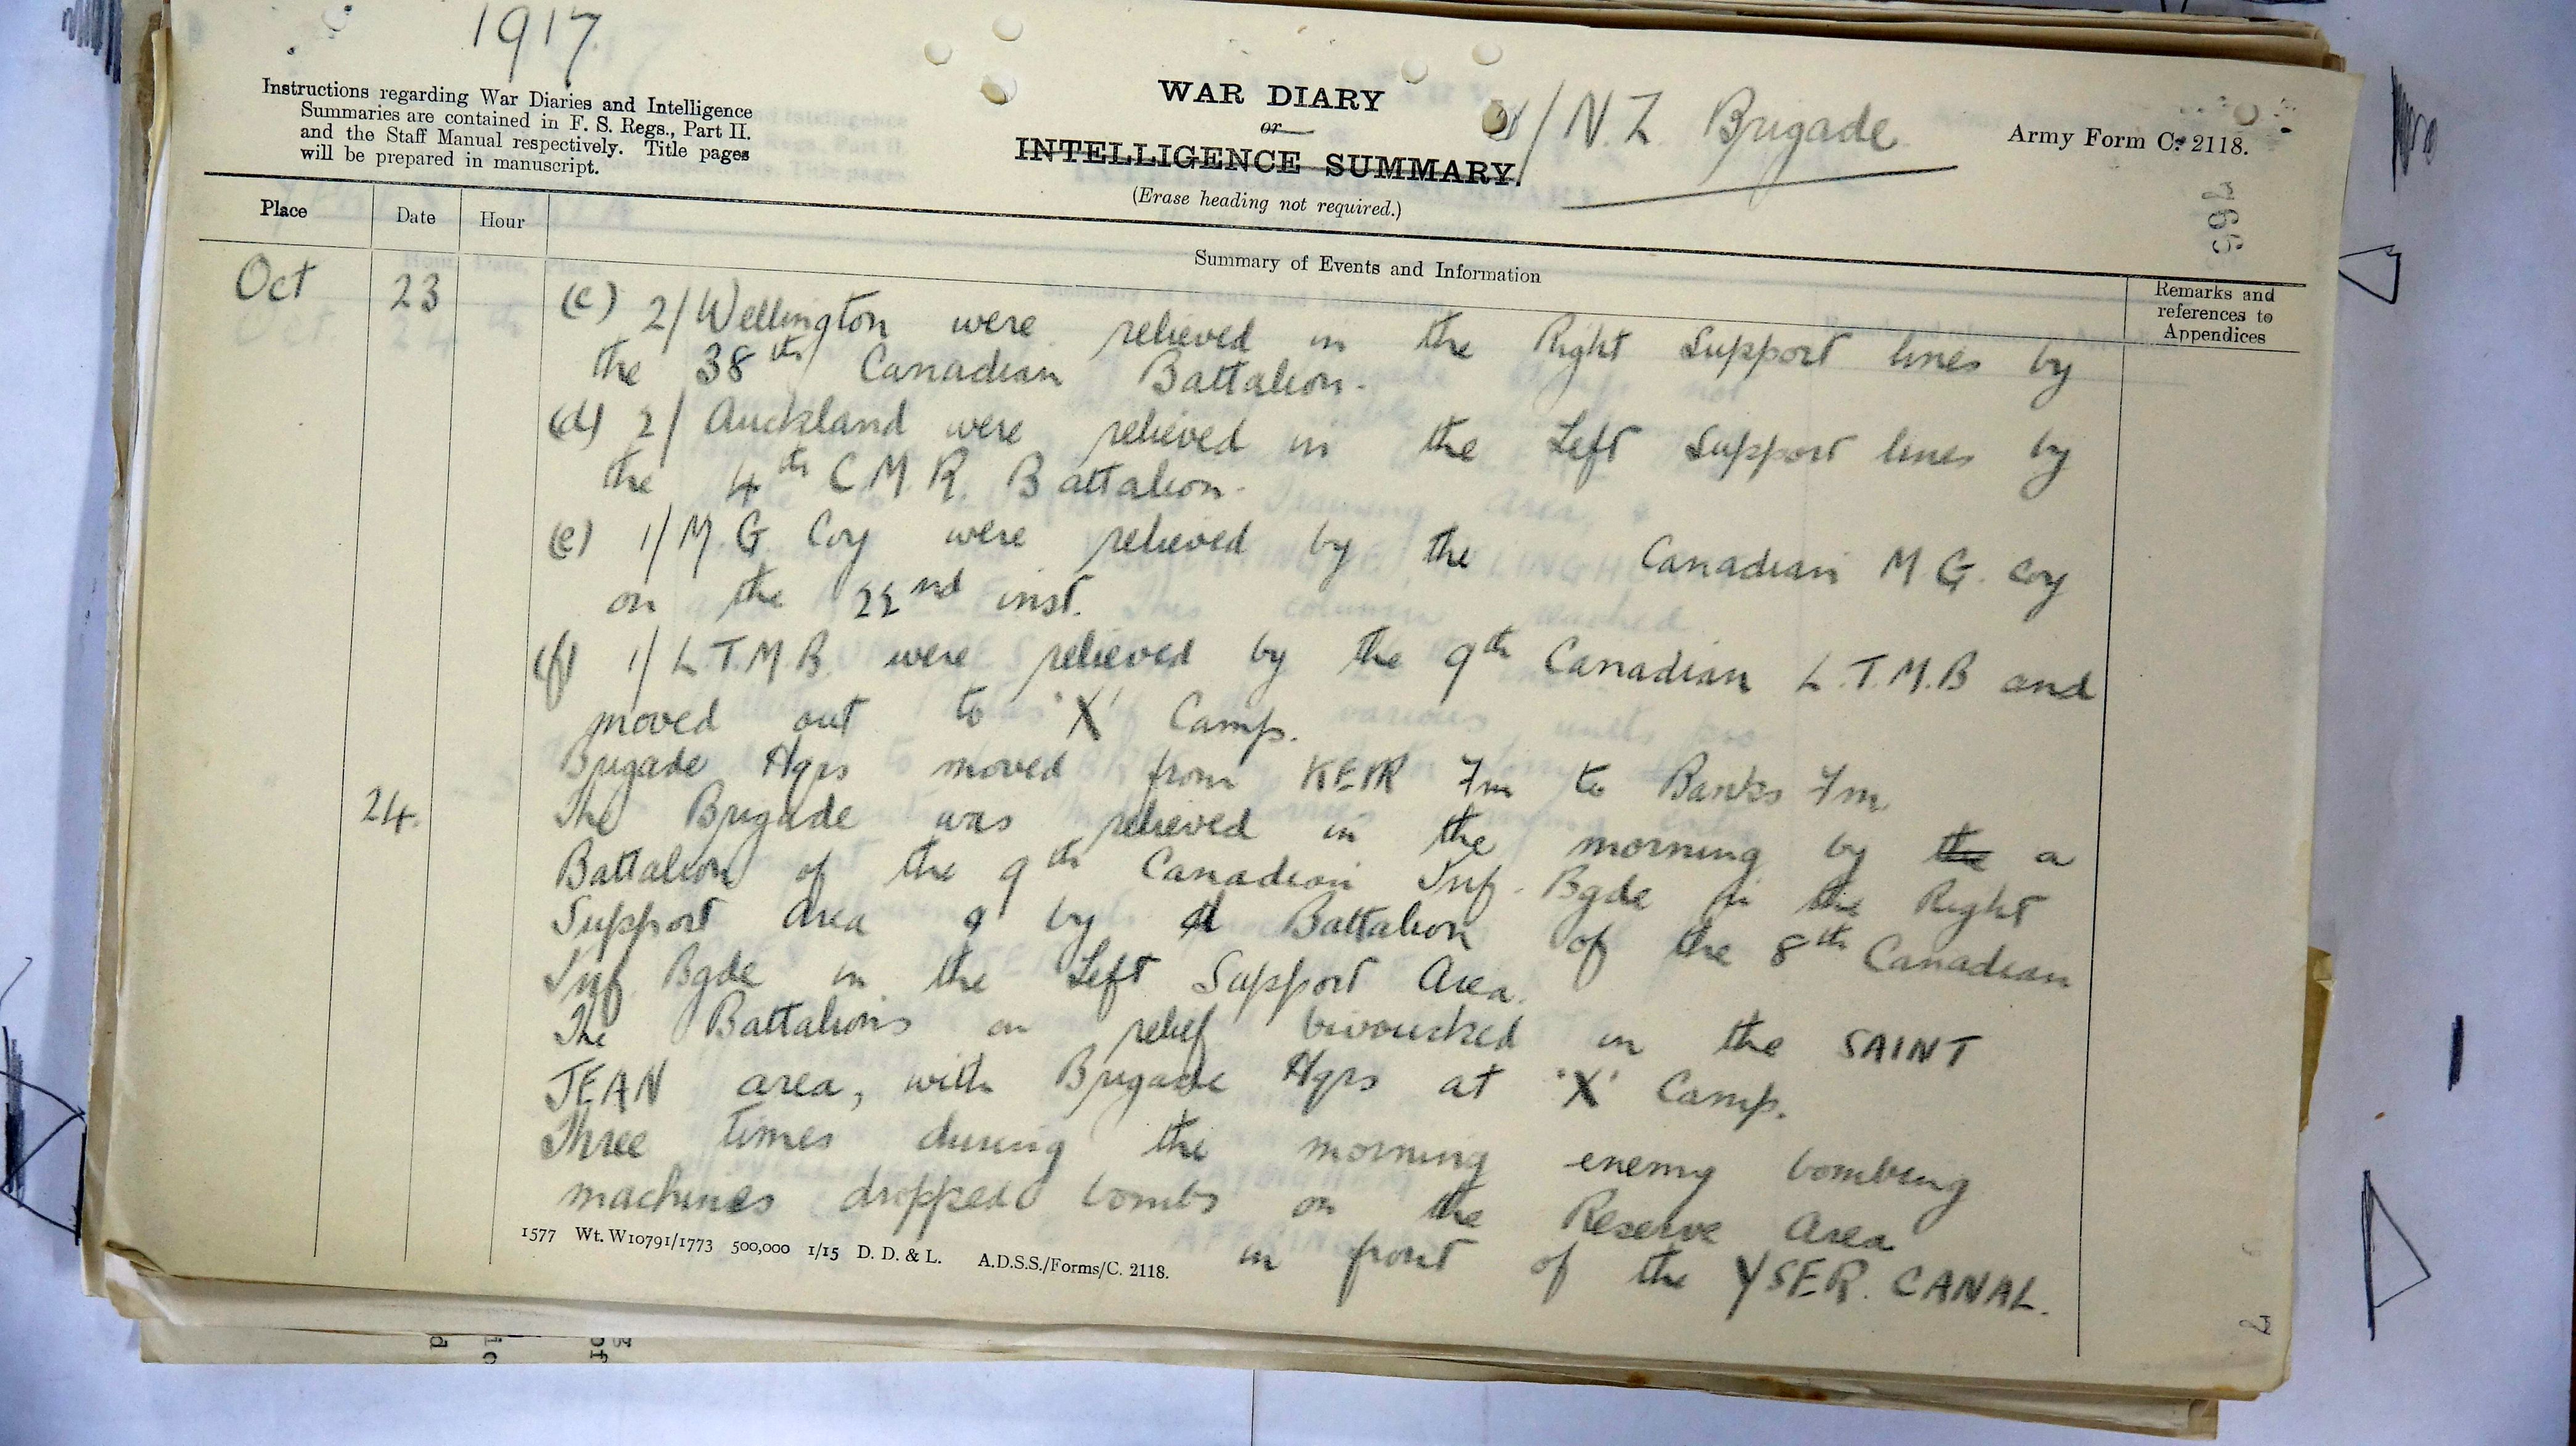 1917
Instructions regarding War Diaries and Intelligence
Summaries are contained in F. S. Regs., Part II.
and the Staff Manual respectively. Title pages
will be prepared in manuscript.
WAR DIARY
or
INTELLIGENCE SUMMARY.
(Erase heading not required.)
1/N.Z. Brigade
Army Form C. 2118.
Place
Date
Hour
Summary of Events and Information
Remarks and
references to
Appendices
Oct 23 (c) 2/Wellington were relieved in the Right Support lines by
the 38th Canadian Battalion.
(d) 2/ Auckland were relieved in the Left Support lines by
the 4th C.M.R. Battalion.
(e) 1/M.G. Coy were relieved by the Canadian M.G. Coy
on the 22nd inst.
(f) 1/L.T.M.B. were relieved by the 9th Canadian L.T.M.B and
moved out to 'X' Camp.
Brigade Hqrs moved from KEIR Fm to Banks Fm.
24. The Brigade was relieved in the morning by the a
Battalion of the 9th Canadian Inf. Bgde in the Right
Support Area & by a Battalion of the 8th Canadian
Inf. Bgde in the Left Support Area.
The Battalions on relief bivoucked in the SAINT
JEAN area, with Brigade Hqrs at 'X' Camp.
Three times during the morning enemy bombing
machines dropped bombs on the Reserve Area
in front of the YSER CANAL.
1577 Wt. W10791/1773 500,000 1/15 D. D. & L. A.D.S.S./Forms/C. 2118.